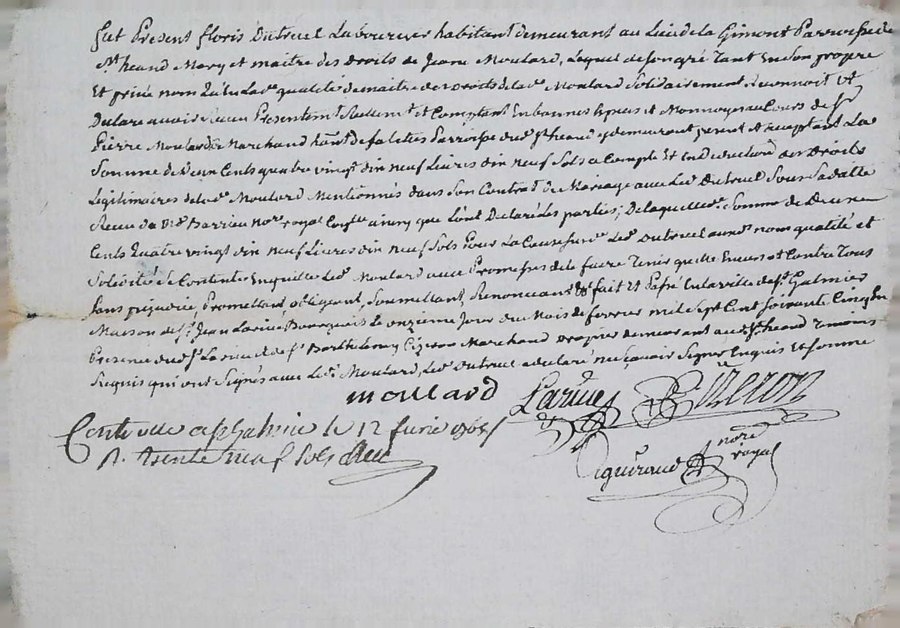 fut Present floris Dutreuel Laboureur habitant demeurant au Lieu de la Gimont Parroisse de
St heand Mary et maitre des Droits de Jeane Moulard, Lequel de son gré tant En son propre
Et privé nom qu'En Lad. qualité de maitre des Droits de lad. Moulard Solidairement Reconnoit Et
Declare avoir Receu Presentemt Reellemt et Comptant En bonnes Especes et Monnoye au Cours de Sr
Pierre Moulard Marchand hant de Parroisse dud. St heand y demeurant present et acceptant La
Somme de Deux Cents quatre vingt dix neuf Livres dix neuf Sols a Compte Et En deduction des Droits
Légitimaires de lad. Moulard Mentionnés dans son Contrat de Mariage avec Led. Dutreuel Sous Sa datte
Receu de Me Barrieu nore royal ainsy que L'ont Declaré Les parties, De laquelle Somme de Deux
Cents Quatre vingt dix neuf Livres dix neuf Sols Pour La Cause Led. Dutreuel auxd. noms qualité et
Solidité Se Contente En quitte Led. Moulard avec Promesses de le faire Tenir quitte Envers et Contre Tous
Sans prejudice, Promettant, obligeant, Soumettant, Renonceant fait Et Passé En la ville de St Galmier
Maison de Sr Jean Larüe, Bourgeois Le onzieme Jour du Mois de fevrier mil Sept Cent Soixante Cinq En
Presence dud. Sr Larue et de Sr Barthelemy Cizeron Marchand Drapier demeurant aud. St heand Temoins
Requis qui ont Signés avec Led. Moulard, Led. Dutreuel a declaré ne Sçavoir Signer Enquis Et Somme
Moulard Larüe B Cizeron
Contrôllé a St Galmier le 12 fevrier 1765
R. trente neuf Sols
nore
royal